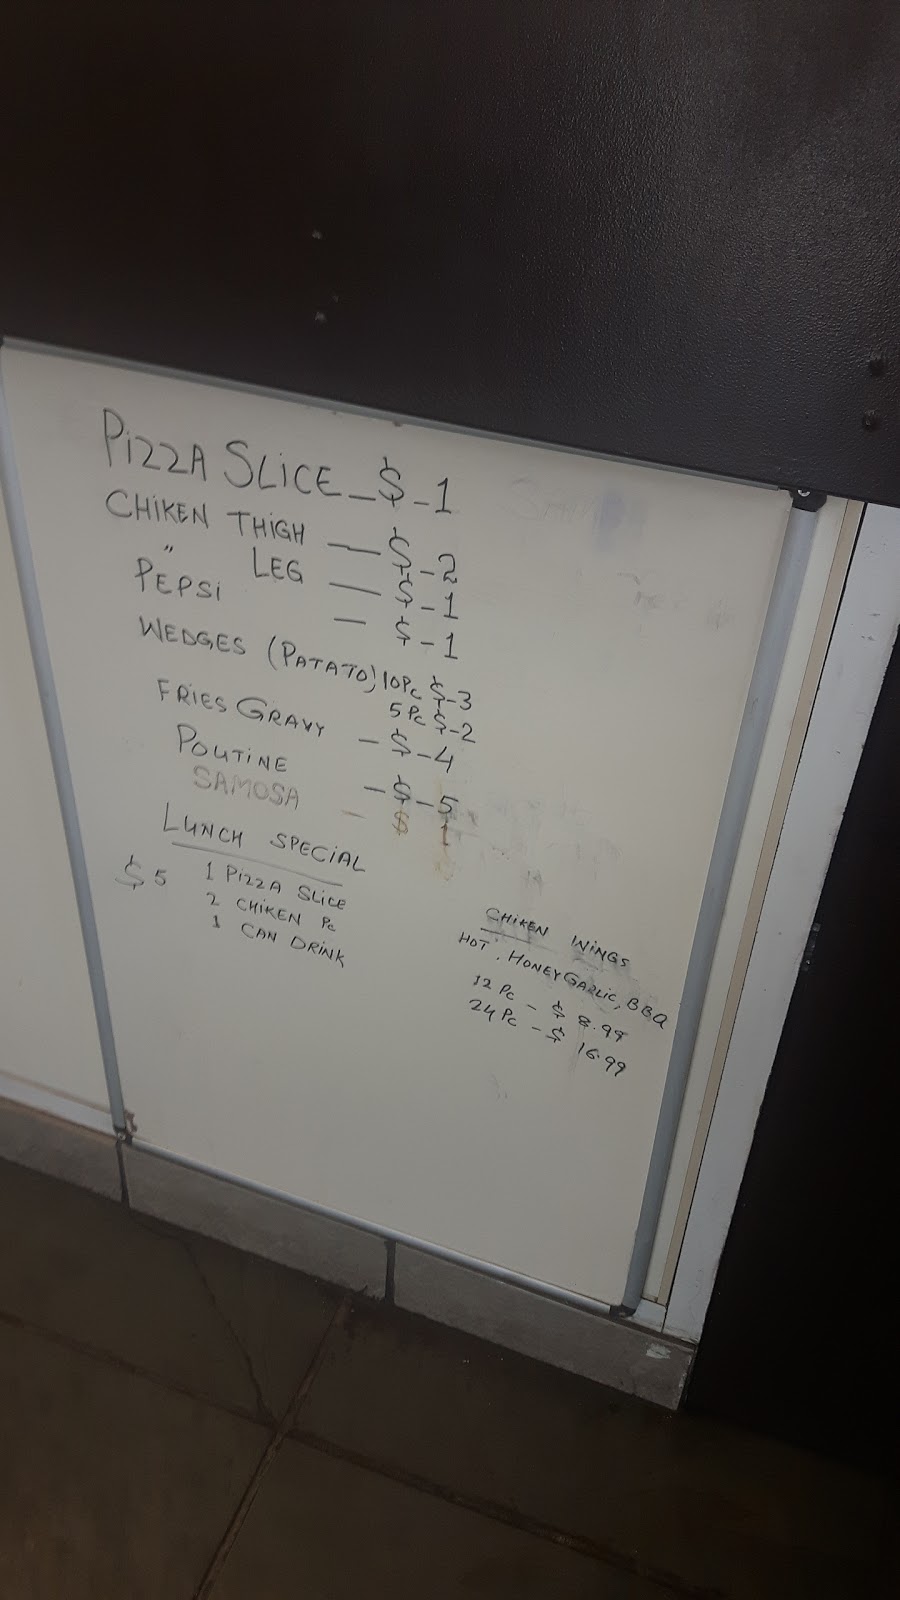 PIZZA SLICE - $ - 1
CHIKEN THIGH — $ - 2
" LEG — $ - 1
PEPSI — $ - 1
WEDGES (PATATO) 10Pc $-3
5 Pc $-2
FRIES GRAVY - $ - 4
POUTINE - $ - 5
SAMOSA - $ 1
LUNCH SPECIAL
$5 1 PIZZA SLICE
2 CHIKEN Pc
1 CAN DRINK
CHIKEN WINGS
HOT, HONEY GARLIC, BBQ
12 Pc - $ 8.99
24 Pc - $ 16.99